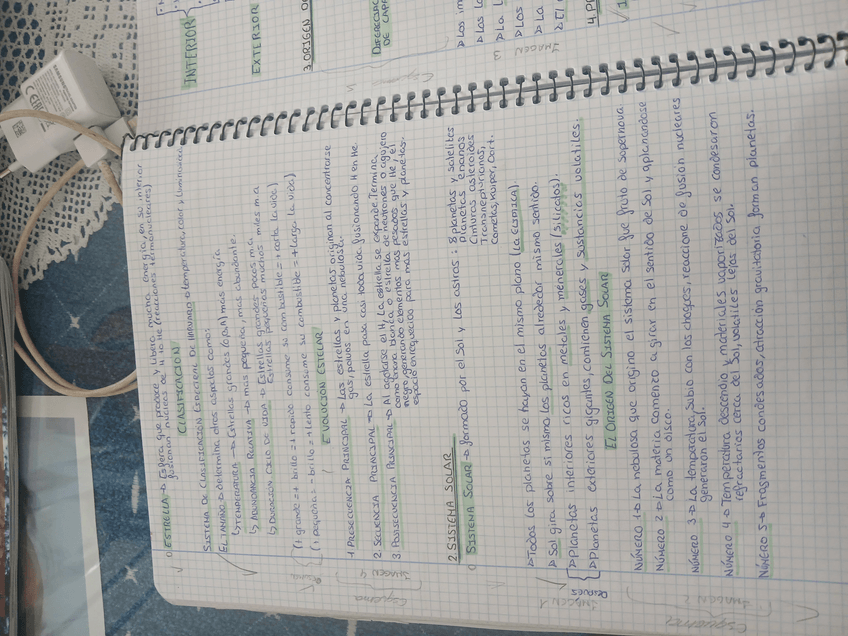 ESTRELLA → Esfera que produce y libera mucha energia, en su interior
fusionan núcleos de H lo He (reacciones termonucleares)
CLASIFICACIÓN
SISTEMA DE CLASIFICACIÓN ESPECTRAL DE HARVARD → temperatura, color y luminosidad
EL TAMAÑO → determina otros aspectos como:
↳ TEMPERATURA → Estrellas grandes (O,B,A) mas energía
↳ ABUNDANCIA RELATIVA → mas pequeña, mas abundante
↳ DURACION CICLO DE VIDA → Estrellas grandes pocos m.a
Estrellas pequeñas muchos miles m.a
(+ grande = + brillo = + rapido consume su combustible = + corta la vida)
(+ pequeña = - brillo = + lento consume su combustible = + larga la vida)
EVOLUCIÓN ESTELAR
1 PRESECUENCIA PRINCIPAL → Las estrellas y planetas originan al concentrarse
gas, polvo en una nebulosa.
2 SECUENCIA PRINCIPAL → La estrella pasa casi toda vida fusionando H en He.
3 POSTSECUENCIA PRINCIPAL → Al agotarse el H, la estrella se expande. Termina
como enana blanca o estrella de neutrones o agujero
negro, generando elementos mas pesados que He, el
espacio enriquecido para mas estrellas y planetas.
2. SISTEMA SOLAR
SISTEMA SOLAR → formado por el Sol y los astros: 8 planetas y satelites
Planetas enanos
Cinturos asteroides
Transneptunianos,
Cometas, Kuiper, Oort.
▹ Todos los planetas se hayan en el mismo plano (LA ECLÍPTICA).
▹ Sol gira sobre si mismo los planetas alrededor mismo sentido.
▹ Planetas interiores ricos en metales y menerales (silicatos).
▹ Planetas exteriores gigantes, contienen gases y sustancias volatiles.
EL ORIGEN DEL SISTEMA SOLAR
NÚMERO 1 → La nebulosa que origino el sistema solar fue fruto de supernova
NÚMERO 2 → La materia comenzo a girar en el sentido de Sol y aplanandose
como un disco.
NÚMERO 3 → La temperatura, subio con los choques, reaccione de fusión nucleares
generaron el Sol.
NÚMERO 4 → Temperatura descendio, materiales vaporizados se condesaron
refractarios cerca del Sol, volatiles lejos del Sol.
NÚMERO 5 → Fragmentos condesados, atracción gravitatoria forman planetas.
Resumen
IMAGEN 4
Esquema
Resumen
IMAGEN 1
IMAGEN 2
Esquema
INTERIOR
EXTERIOR
3. ORIGEN DE
DE CAPA
▹ Los m
▹ Las
▹ La
▹ Las
▹ La
▹ El
IMAGEN 3
Esquema
CE